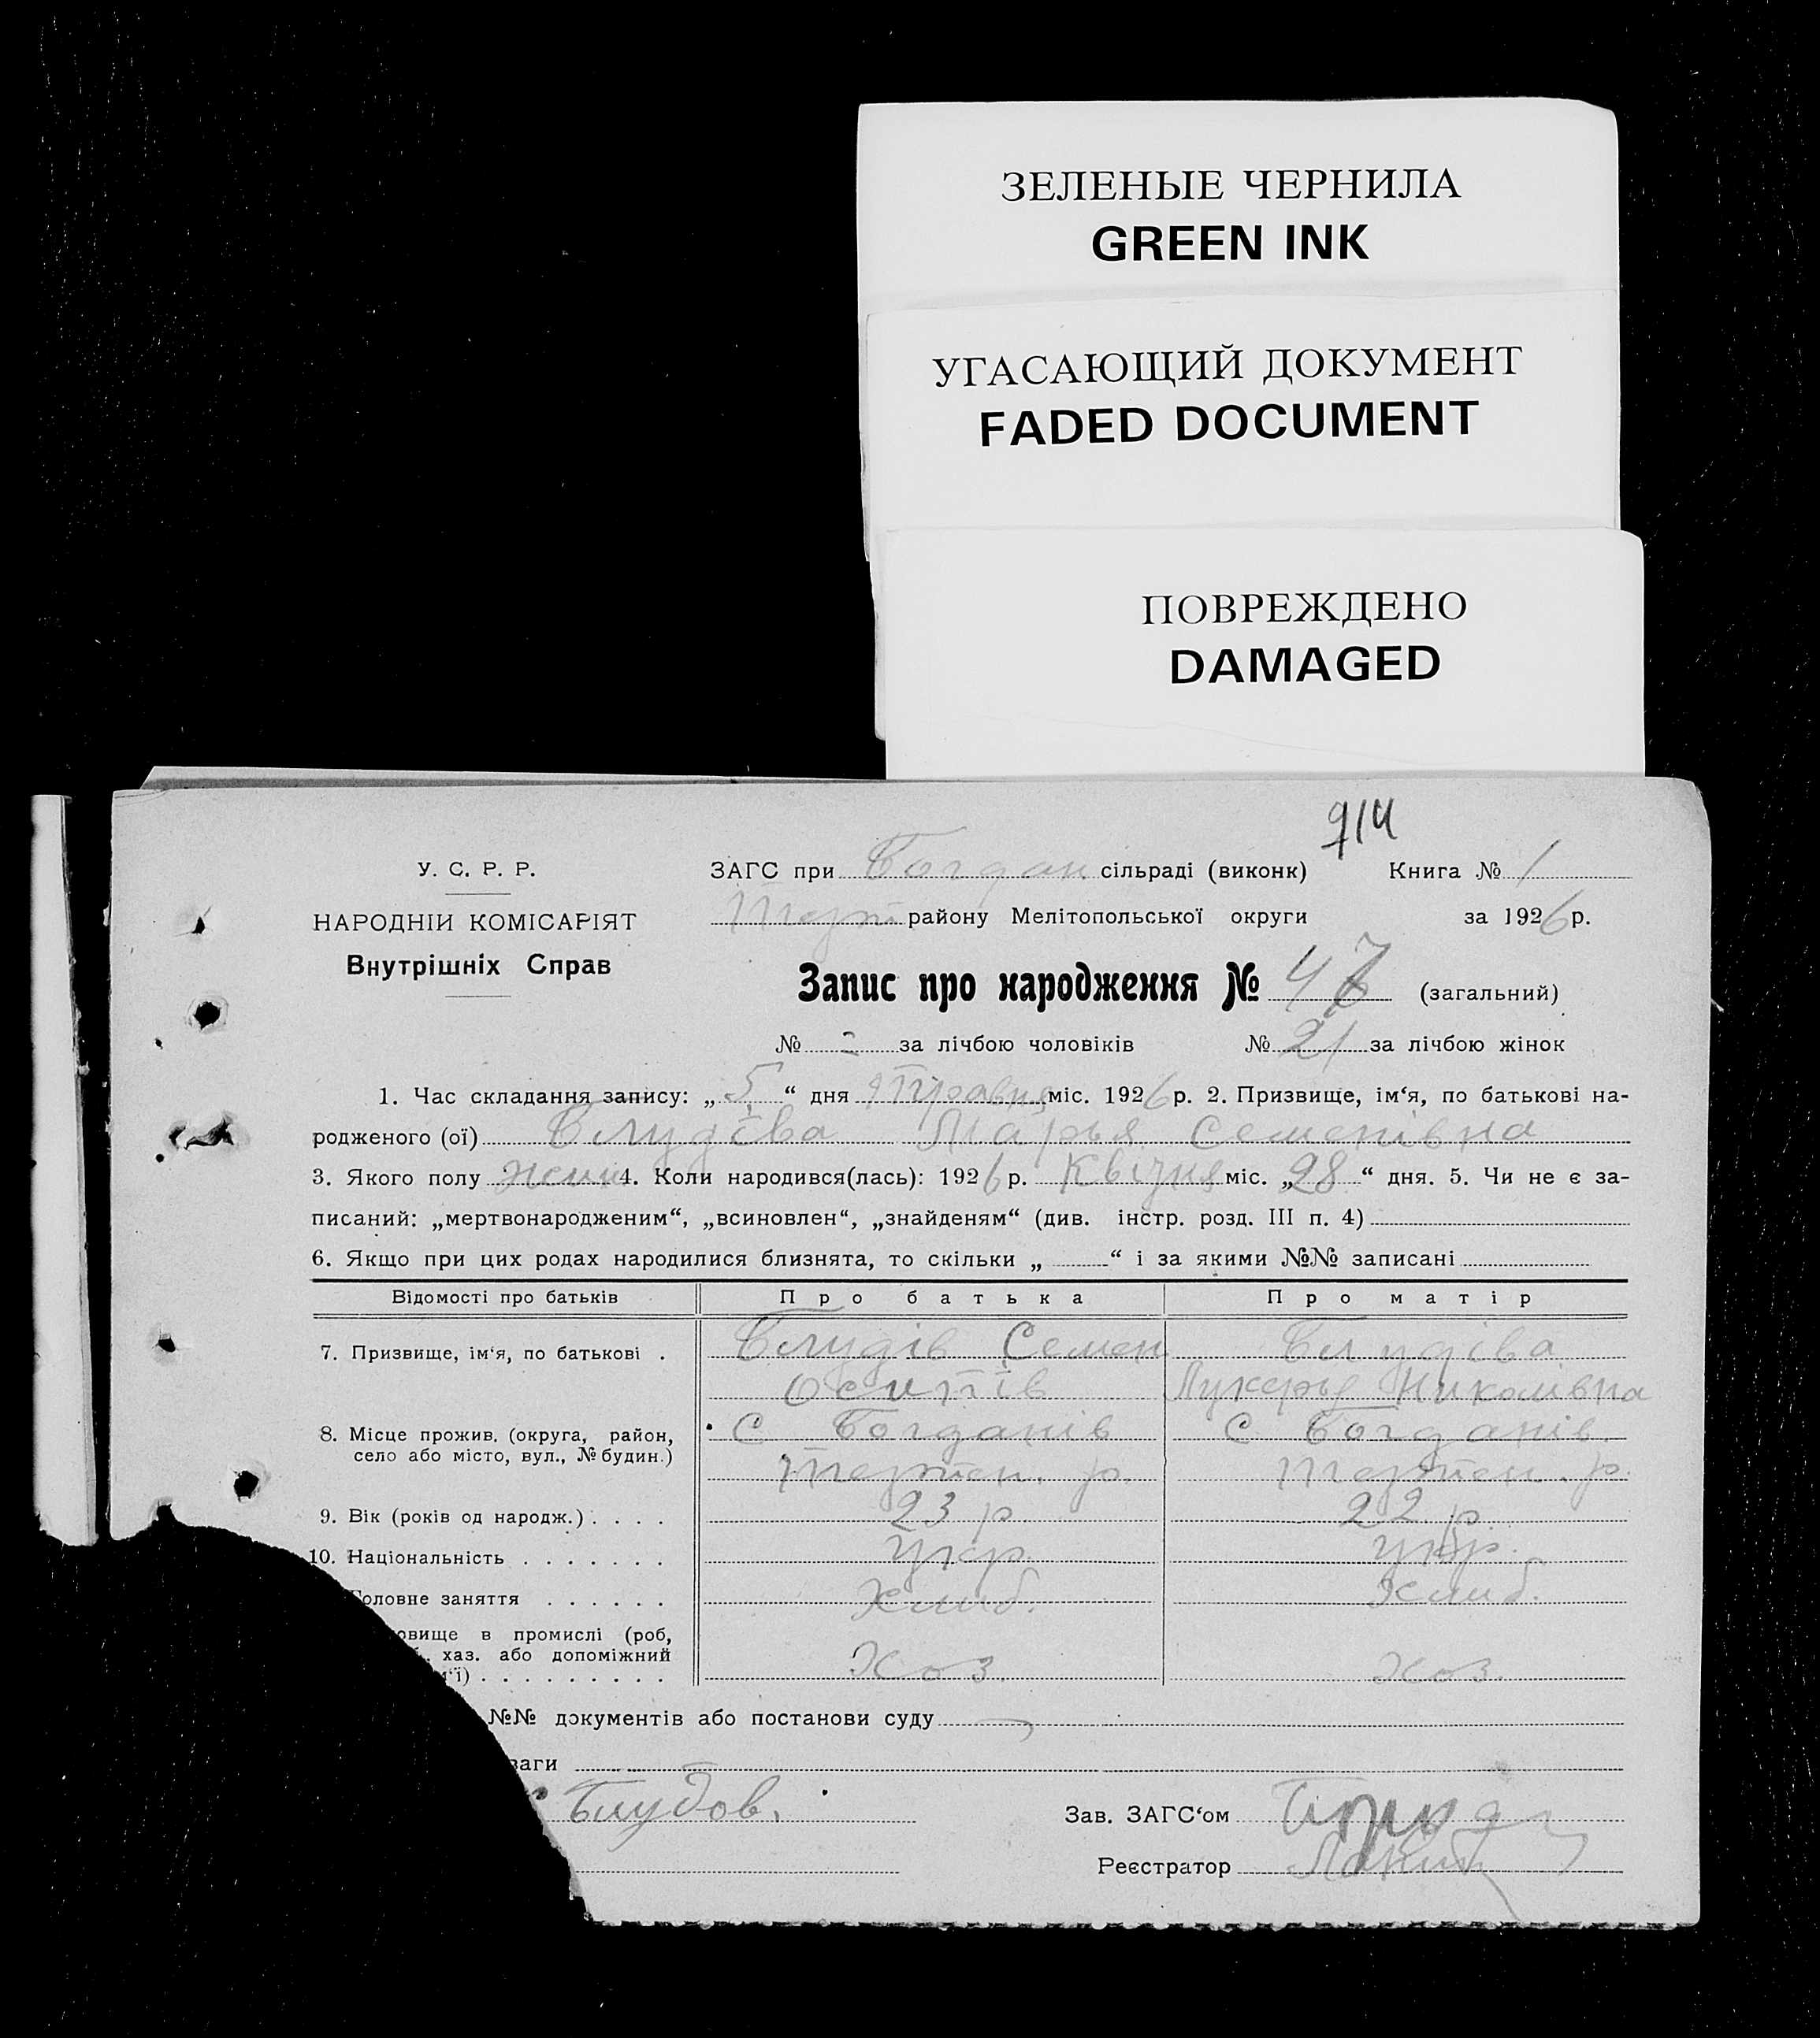 ЗЕЛЕНЫЕ ЧЕРНИЛА
GREEN INK
УГАСАЮЩИЙ ДОКУМЕНТ
FADED DOCUMENT
ПОВРЕЖДЕНО
DAMAGED
714
У. С. Р. Р.
ЗАГС при Богдан сільраді (виконк) Книга № 1
НАРОДНІИ КОМІСАРІЯТ
Терп району Мелітопольської округи за 1926 р.
Внутрішніх Справ
Запис про народження № 47 (загальний)
№ за лічбою чоловіків № 21 за лічбою жінок
1. Час складання запису: „ 5 “ дня Травня міс. 1926 р. 2. Призвище, ім‘я, по батькові на-
родженого (ої) Блудіва Марья Семенівна
3. Якого полу жин 4. Коли народився(лась): 1926 р. Квітня міс. „28“ дня. 5. Чи не є за-
писаний: „мертвонародженим“, „всиновлен“, „знайденям“ (див. інстр. розд. III п. 4)
6. Якщо при цих родах народилися близнята, то скільки „ “ і за якими №№ записані
Відомості про батьків Про батька Про матір
7. Призвище, ім‘я, по батькові . Блудів Семен Блудіва
Осипів Лукерья Николівна
8. Місце прожив. (округа, район, с Богданів с Богданів.
село або місто, вул., № будин.) Терпен. р. Терпен. р.
9. Вік (років од народж.) . . . . 23 р 22 р.
10. Національність . . . . . . . укр. укр.
Головне заняття . . . . . . Хлиб. Хлиб.
овище в промислі (роб,
хаз. або допоміжний
м‘ї) . . . . . . . . . Хоз. хоз.
№№ документів або постанови суду
ваги
Блудов. Зав. ЗАГС‘ом
Реєстратор